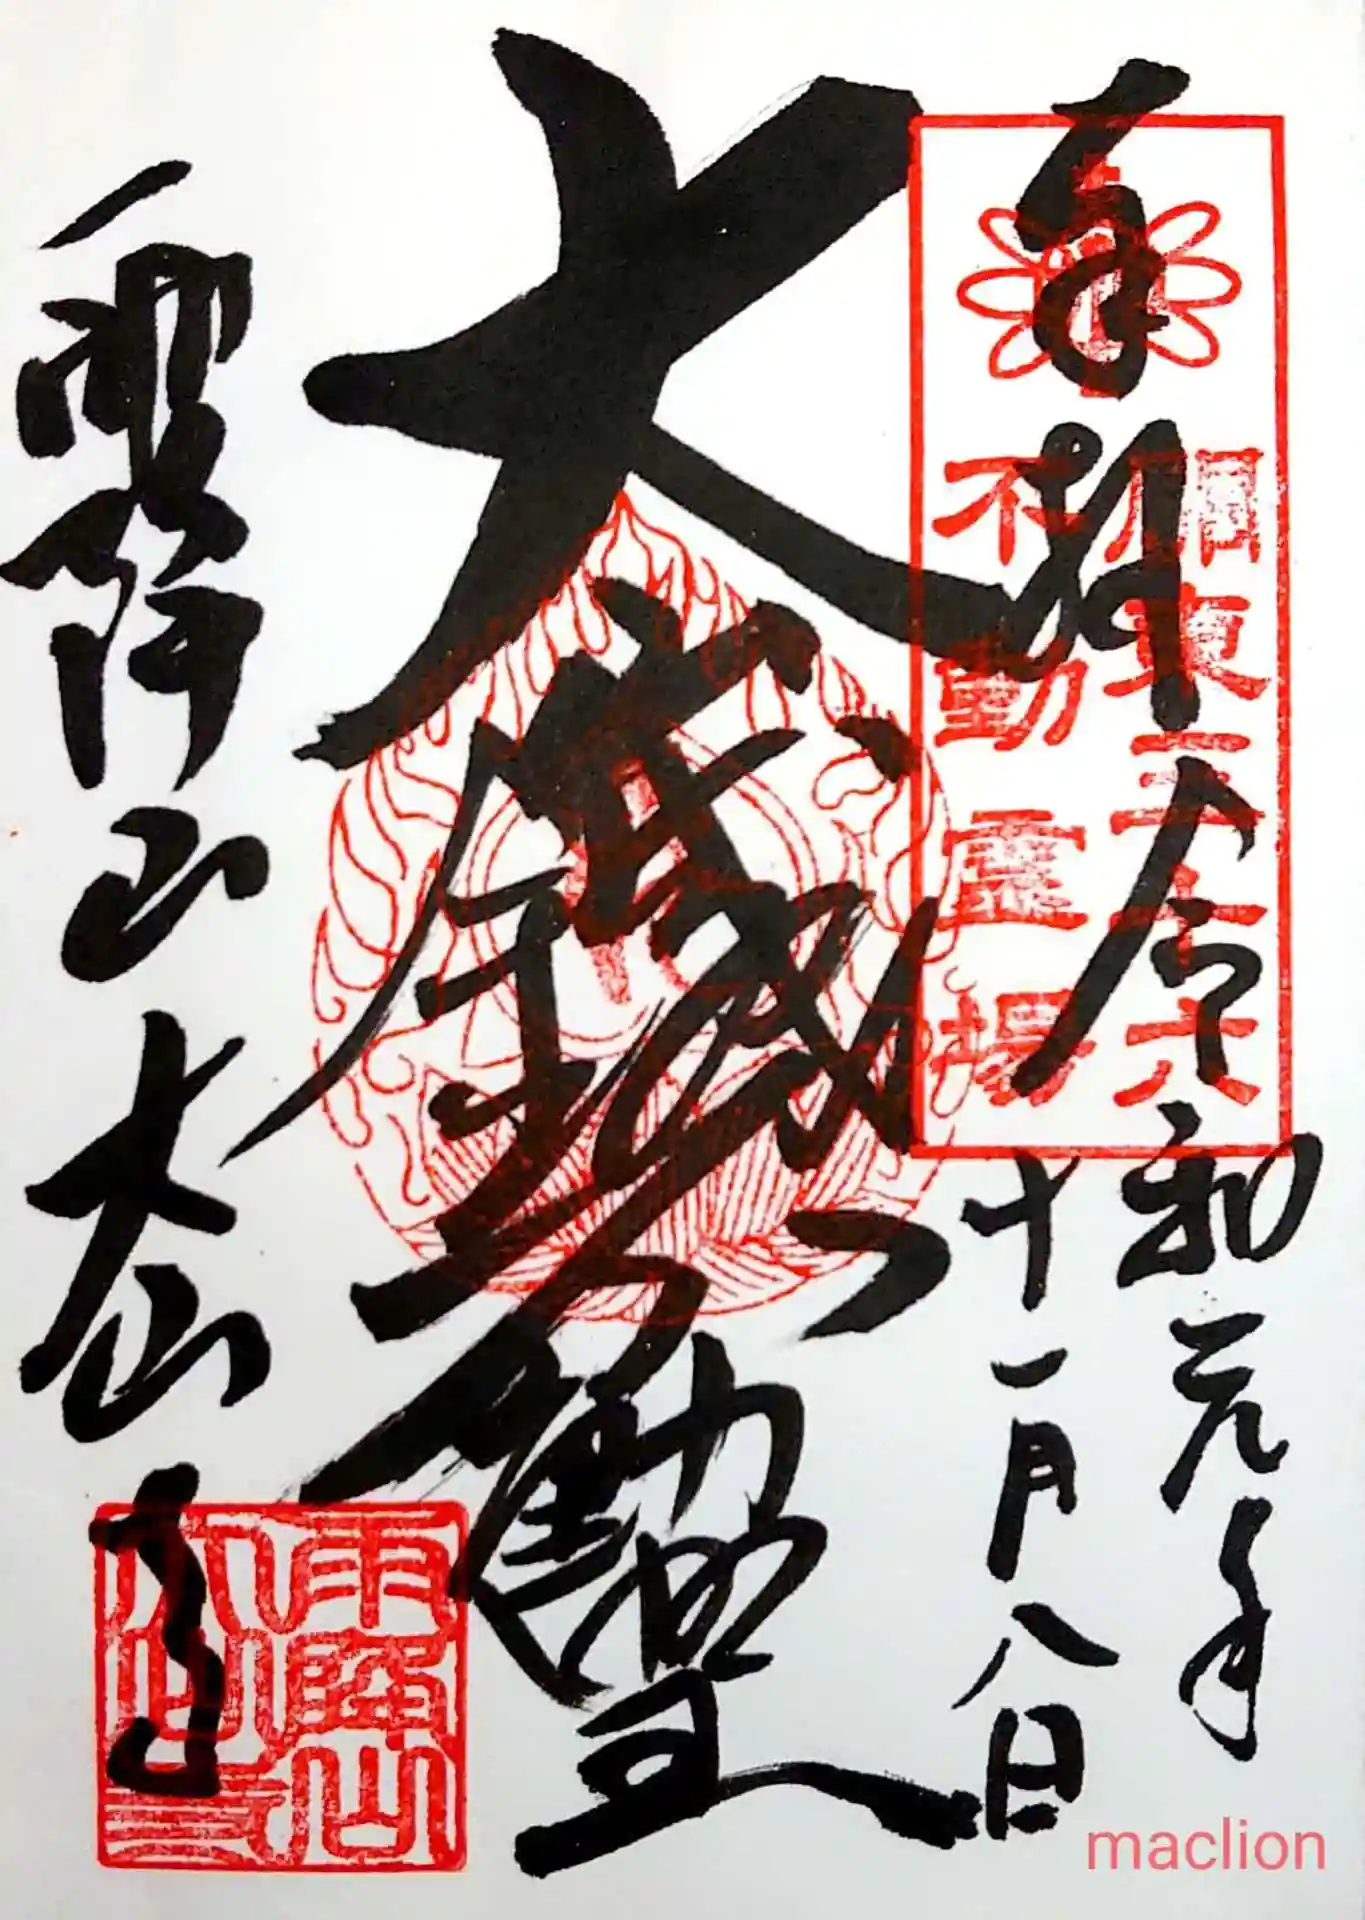 奉拝
令和元年
十一月八日
關東三十六
不動靈場
大鐵不動明王
雨降山大山寺
雨降山
大山寺
maclion